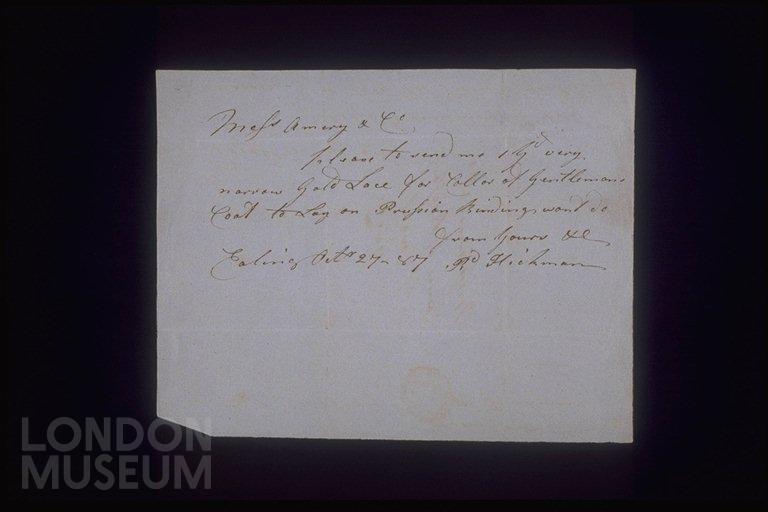 Messrs Amery & Co
Please to send me 1 Yd very
narrow Gold Lace for Collar of Gentlemans
Coat to Lay on Prussian Binding wont do
from Yours &c
Ealing Octr 27 - 87 Rd Hickman
LONDON
MUSEUM